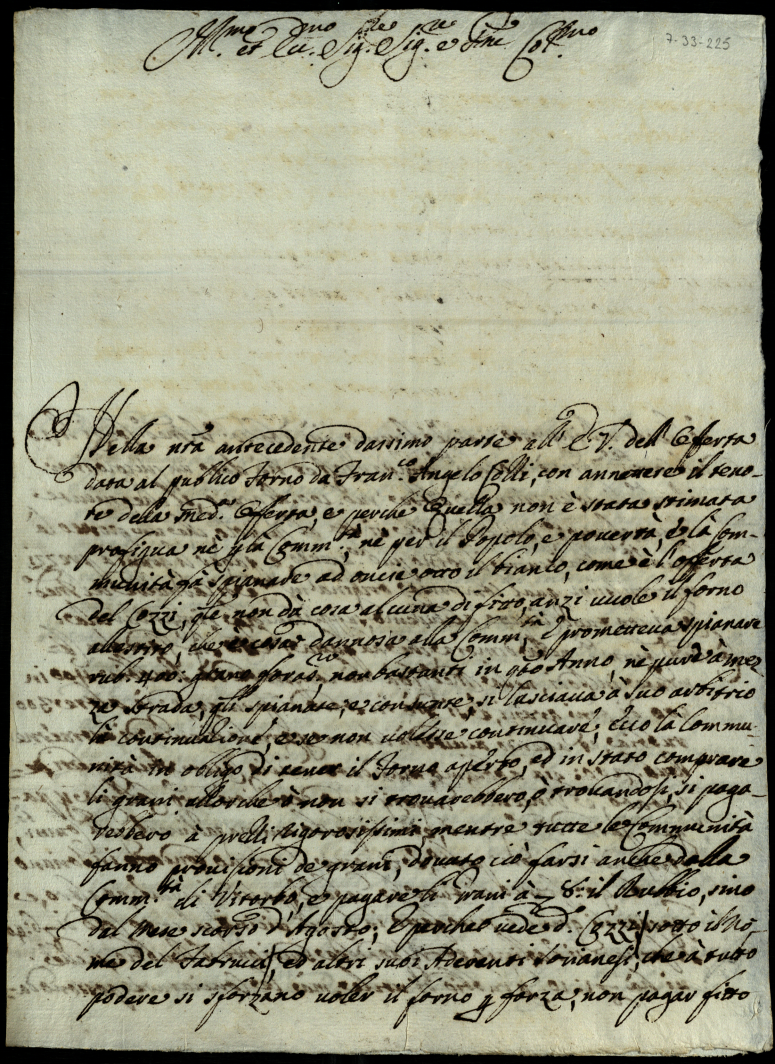 7-33-225
Ill.mo et Ecc.mo Sig.re Sig.re e P̃ne Col.mo
Nella nr̃a antecedente dassimo parte all' E.V. dell' Offerta
data al publico Forno da Fran.co Angelo Colli, con annettere il teno-
re della med.a Offerta, e perche Quella non è stata stimata
proficua ne p la Comm.tà, nè per il Popolo, e povertà, e la Com-
munità già spianare ad oncie otto il bianco, come è l'offerta
del Cozzi, che non dà cosa alcuna di fitto, anzi vuole il forno
che è cosa dannosa alla Comm.tà, E prometteva spianare
rub. grano non bastanti in q̃to Anno, nè pure à mez-
ze strada, p li spianare, e con si lasciava à suo arbitrio
la continuazione, e se non volesse continuare, Ecco la Commu-
nità in obligo di tener il Forno aperto, ed in stato comprare
li grani allorche ò non si trovarebbero, o trovandosi, si paga-
rebbero à prezzi rigorosissimi, mentre tutte le Communità
fanno provisioni de grani, dovuto ciò farsi anche dalla
Comm.tà di Viterbo, e pagare li grani à 7 8 il Rubbio, sino
dal Mese scorso d'Agosto; E perche vede d.o Cozzi (sotto il No-
me del Fatrucci) ed altri suoi Aderenti Sorianesi, che à tutto
podere si sforzano voler il forno p forza, non pagar fitto